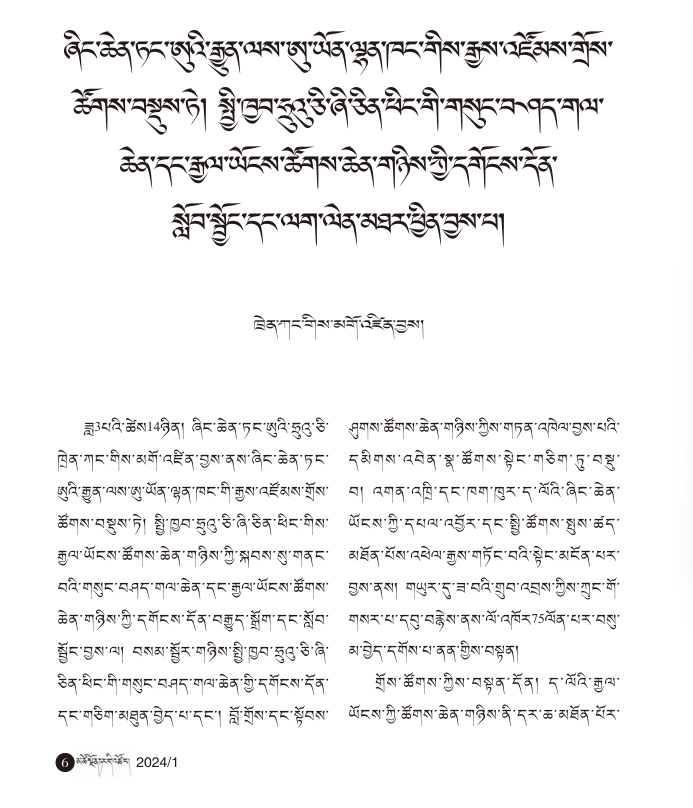 ཞིང་ཆེན་ཏང་ཨུའི་རྒྱུན་ལས་ཨུ་ཡོན་ལྷན་ཁང་གིས་རྒྱས་འཛོམས་གྲོས་
ཚོགས་བསྡུས་ཏེ། སྤྱི་ཁྱབ་ཧྲུའུ་ཅི་ཞི་ཅིན་ཕིང་གི་གསུང་བཤད་གལ་
ཆེན་དང་རྒྱལ་ཡོངས་ཚོགས་ཆེན་གཉིས་ཀྱི་དགོངས་དོན་
སློབ་སྦྱོང་དང་ལག་ལེན་མཐར་ཕྱིན་བྱས་པ།
ཁྲེན་ཀང་གིས་མགོ་འཛིན་བྱས།
ཟླ3པའི་ཚེས14ཉིན། ཞིང་ཆེན་ཏང་ཨུའི་ཧྲུའུ་ཅི་
ཁྲེན་ཀང་གིས་མགོ་འཛིན་བྱས་ནས་ཞིང་ཆེན་ཏང་
ཨུའི་རྒྱུན་ལས་ཨུ་ཡོན་ལྷན་ཁང་གི་རྒྱས་འཛོམས་གྲོས་
ཚོགས་བསྡུས་ཏེ། སྤྱི་ཁྱབ་ཧྲུའུ་ཅི་ཞི་ཅིན་ཕིང་གིས་
རྒྱལ་ཡོངས་ཚོགས་ཆེན་གཉིས་ཀྱི་སྐབས་སུ་གནང་
བའི་གསུང་བཤད་གལ་ཆེན་དང་རྒྱལ་ཡོངས་ཚོགས་
ཆེན་གཉིས་ཀྱི་དགོངས་དོན་བརྒྱུད་སྒྲོག་དང་སློབ་
སྦྱོང་བྱས་ལ། བསམ་སྦྱོར་གཉིས་སྤྱི་ཁྱབ་ཧྲུའུ་ཅི་ཞི་
ཅིན་ཕིང་གི་གསུང་བཤད་གལ་ཆེན་གྱི་དགོངས་དོན་
དང་གཅིག་མཐུན་བྱེད་པ་དང་། བློ་གྲོས་དང་སྟོབས་
ཤུགས་ཚོགས་ཆེན་གཉིས་ཀྱིས་གཏན་འཁེལ་བྱས་པའི་
དམིགས་འབེན་སྣ་ཚོགས་སྟེང་གཅིག་ཏུ་བསྡུ་
བ། འགན་འཁྲི་དང་ཁག་ཁུར་ད་ལོའི་ཞིང་ཆེན་
ཡོངས་ཀྱི་དཔལ་འབྱོར་དང་སྤྱི་ཚོགས་སྤུས་ཚད་
མཐོན་པོས་འཕེལ་རྒྱས་གཏོང་བའི་སྟེང་མངོན་པར་
བྱས་ནས། གཡུར་དུ་ཟ་བའི་གྲུབ་འབྲས་ཀྱིས་ཀྲུང་གོ་
གསར་པ་དབུ་བརྙེས་ནས་ལོ་འཁོར75ལོན་པར་བསུ་
མ་བྱེད་དགོས་པ་ནན་གྱིས་བསྟན།
གྲོས་ཚོགས་ཀྱིས་བསྟན་དོན། ད་ལོའི་རྒྱལ་
ཡོངས་ཀྱི་ཚོགས་ཆེན་གཉིས་ནི་དར་ཆ་མཐོན་པོར་
6 མཚོ་སྔོན་དང་གི་འཚོ་བ། 2024/1